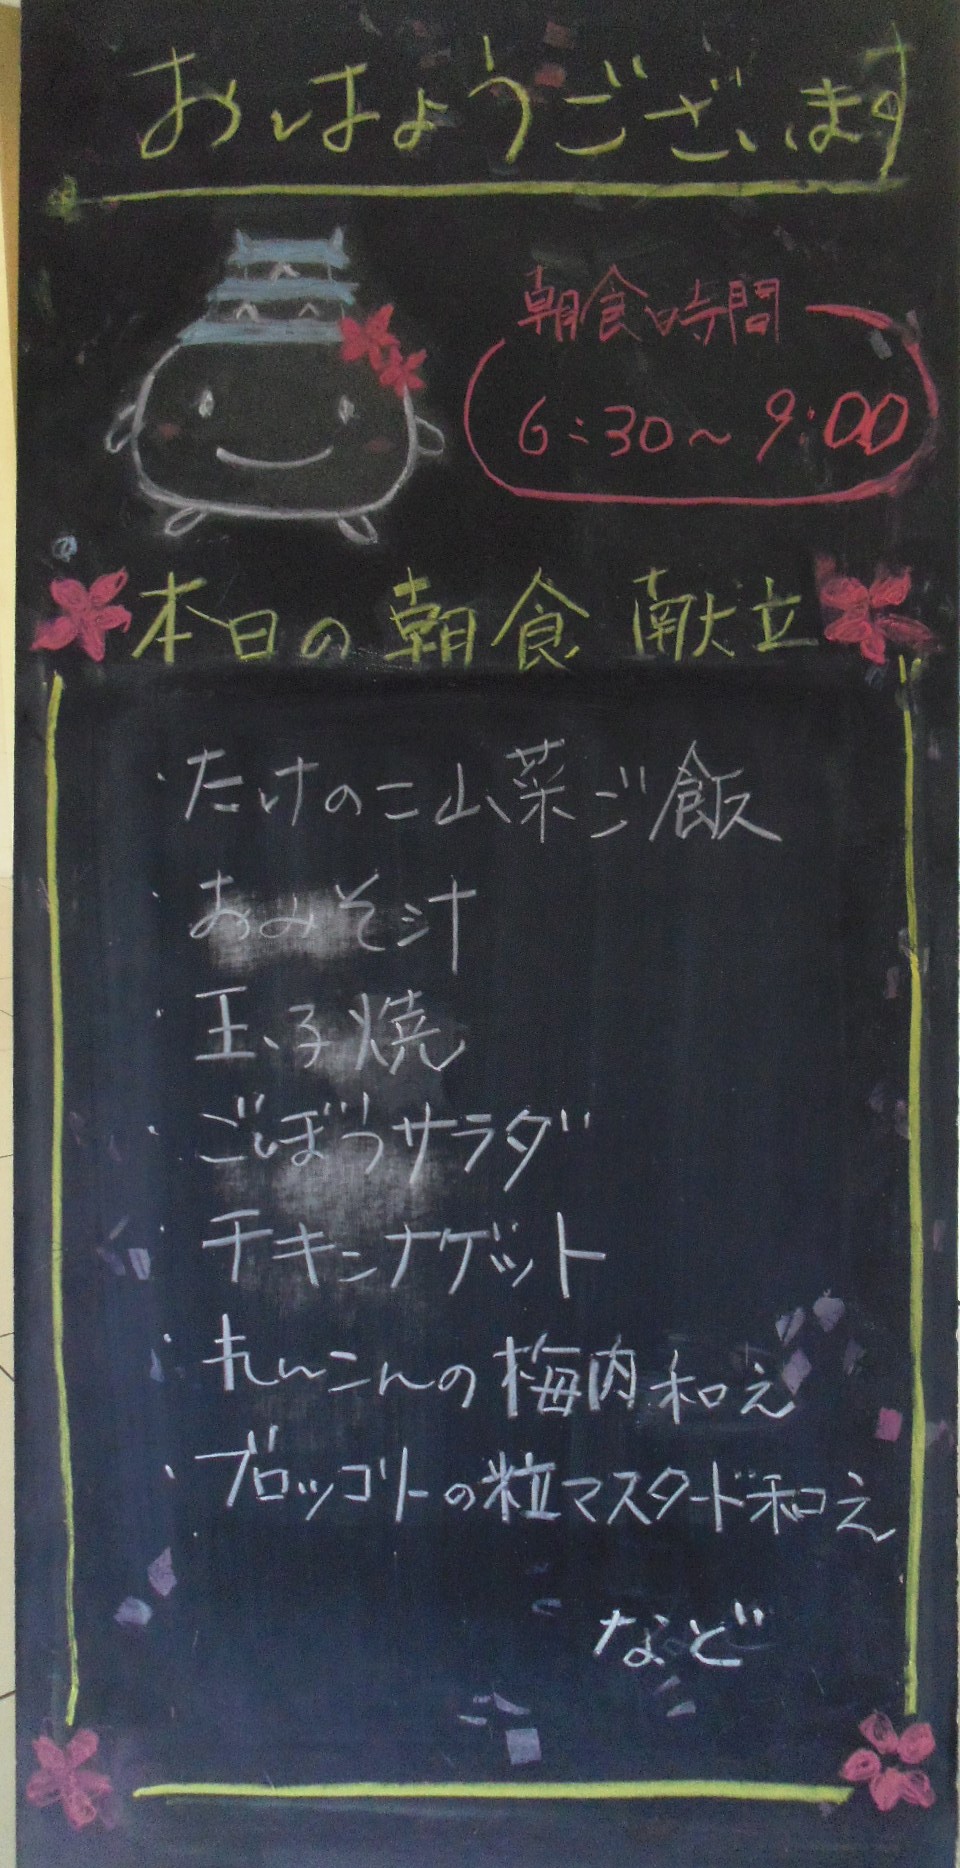 おはようございます
朝食時間
6:30～9:00
本日の朝食 献立
・たけのこ山菜ご飯
・おみそ汁
・玉子焼
・ごぼうサラダ
・チキンナゲット
・れんこんの梅肉和え
・ブロッコリーの粒マスタード和え
など